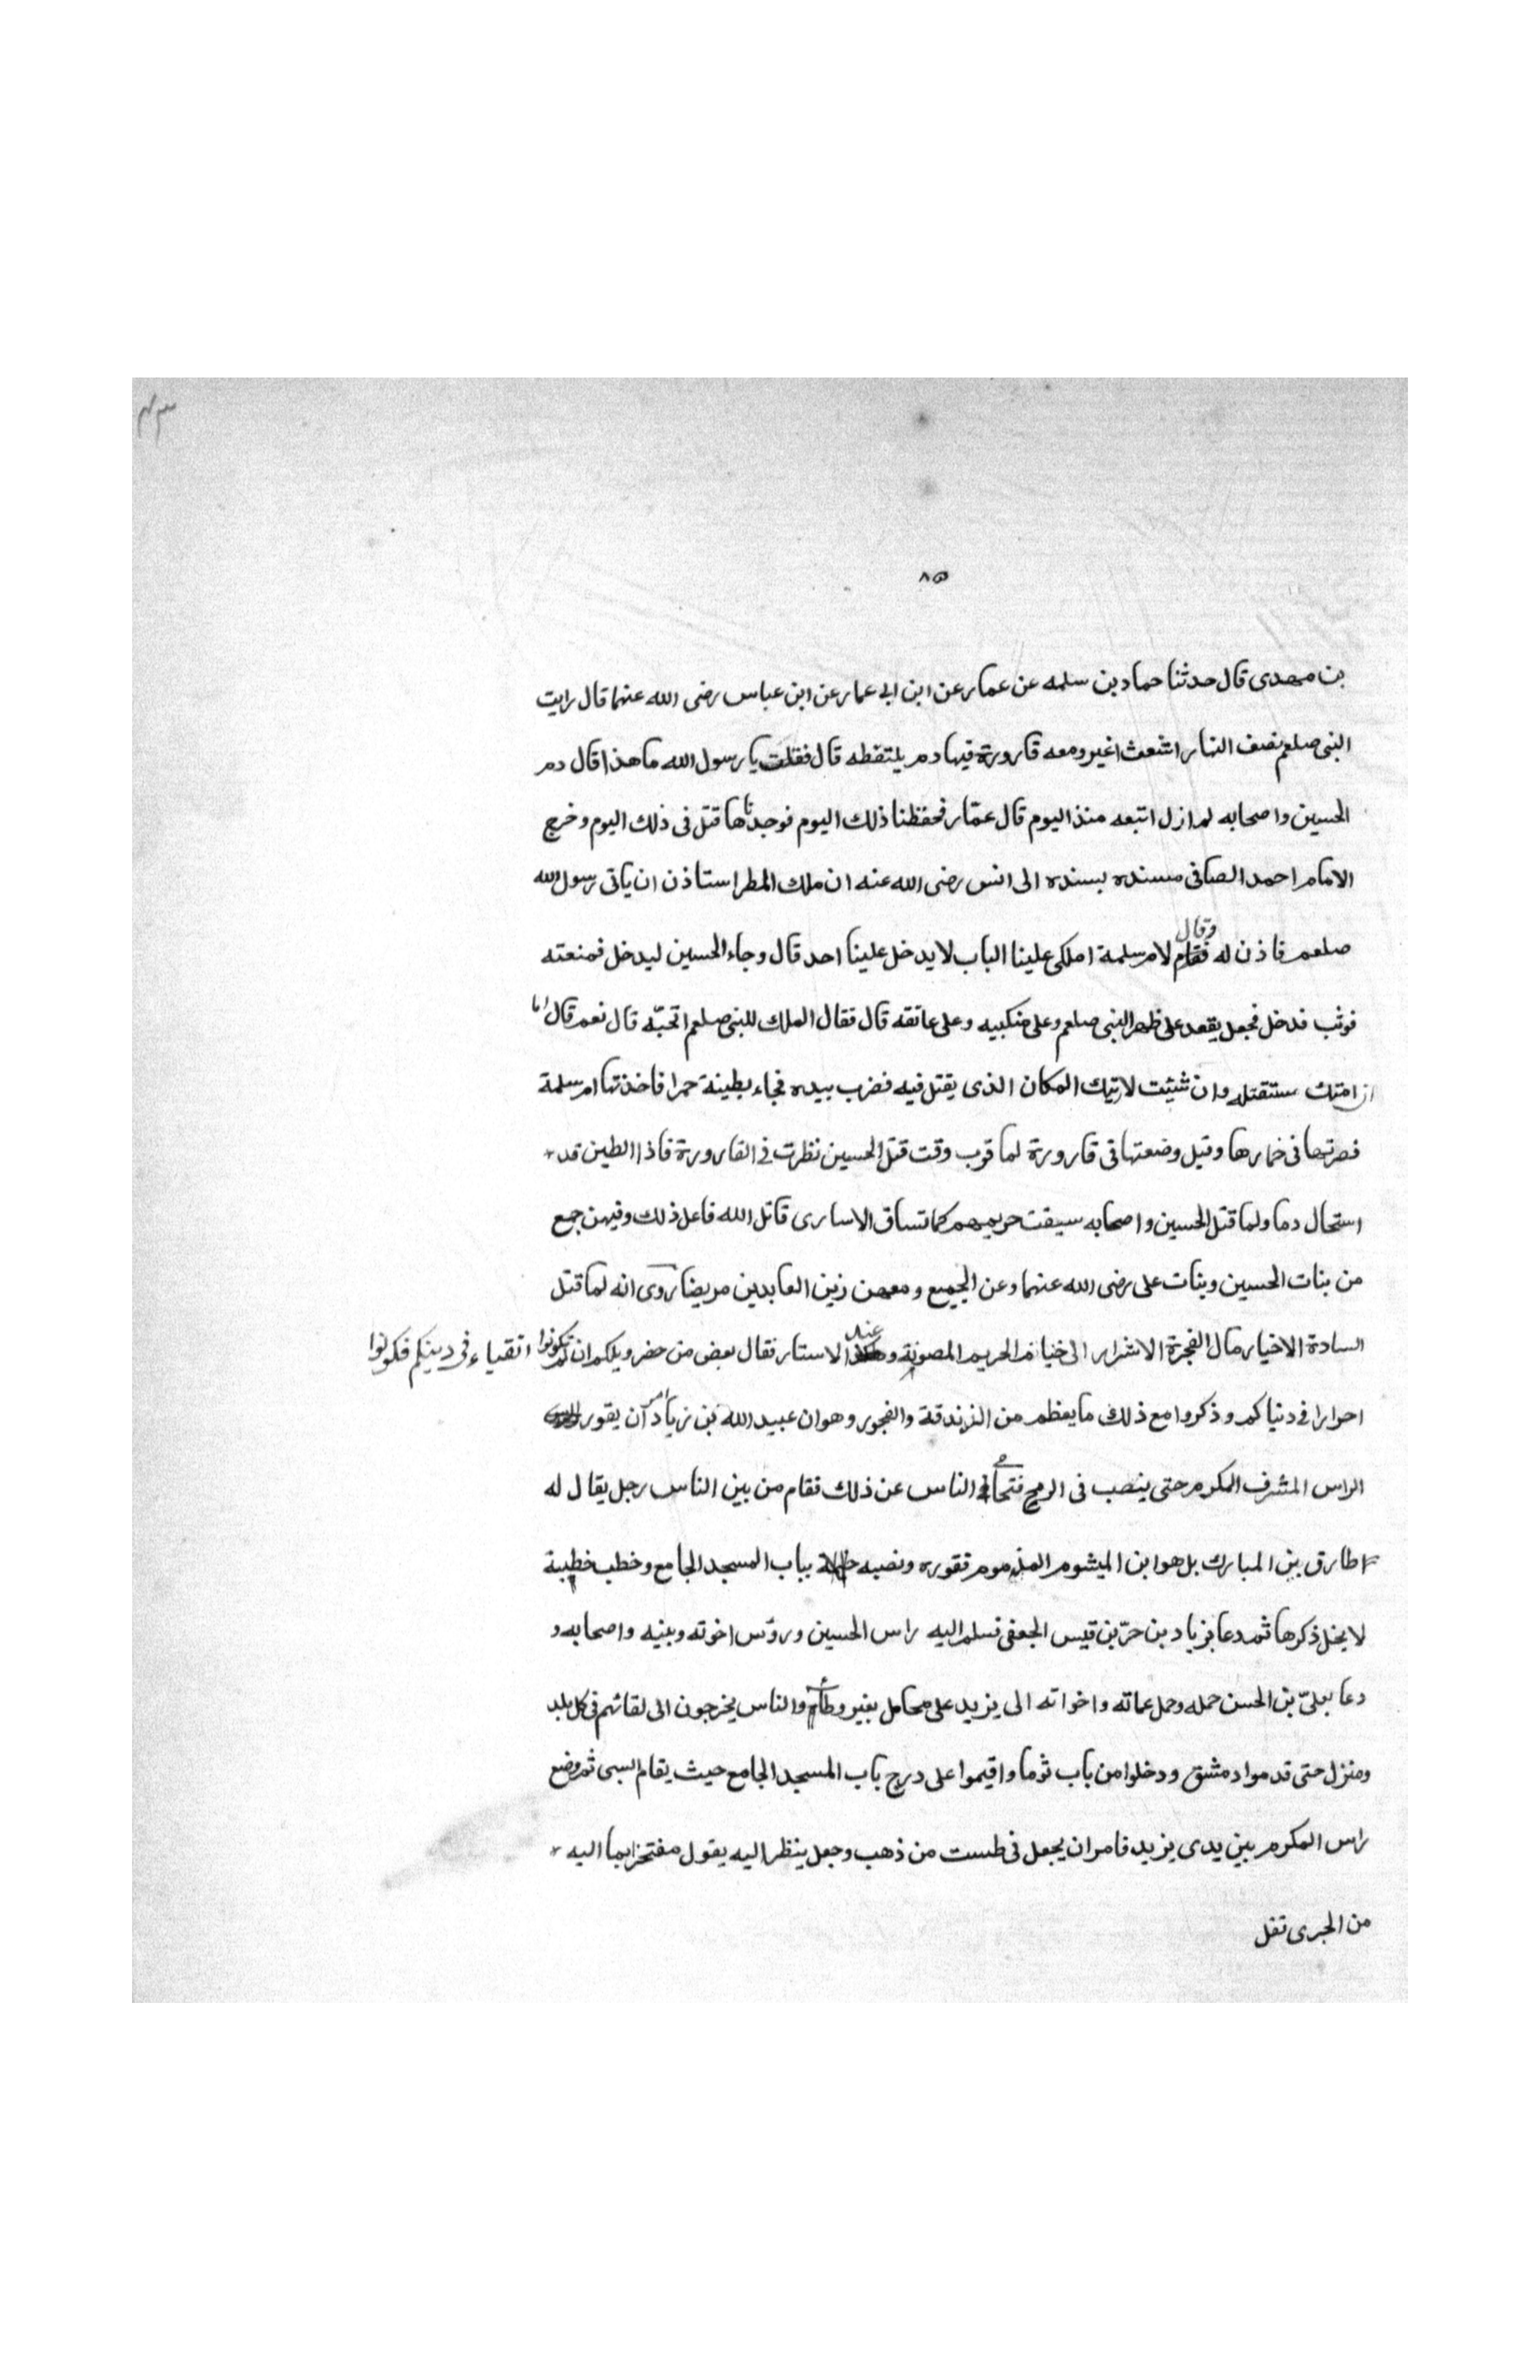 ٨٥
بن مهدى قال حدثنا حماد بن سلمه عن عمار عن ابن ابى عمار عن ابن عباس رضى الله عنهما قال رايت
النبى صلعم نصف النهار اشعث اغبر ومعه قارورة فيها دم يلتقطه قال فقلت يا رسول الله ما هذا قال دم
الحسين واصحابه لم ازل اتبعه منذ اليوم قال عمّار فحفظنا ذلك اليوم فوجدناها قتل فى ذلك اليوم وخرج
الامام احمد ايضا فى مسنده بسنده الى انس رضى الله عنه ان ملك المطر استاذن ان ياتى رسول الله
صلعم فاذن له وقال لام سلمة املكى علينا الباب لا يدخل علينا احد قال وجاء الحسين ليدخل فمنعته
فوثب فدخل فجعل يقعد على ظهر النبى صلعم وعلى منكبيه وعلى عاتقه قال فقال الملك للنبى صلعم اتحبّه قال نعم قال اما
ان امتك ستقتله وان شئت لاريتك المكان الذى يقتل فيه فضرب بيده فجاء بطينة حمرا فاخذتها ام سلمة
فصرتها فى خمارها وقيل وضعتها فى قارورة لما قرب وقت قتل الحسين نظرت فى القارورة فاذا الطين قد
استحال دما ولما قتل الحسين واصحابه سيقت حريمهم كما تساق الاسارى قاتل الله فاعل ذلك وفيهن جمع
من بنات الحسين وبنات على رضى الله عنهما وعن الجميع ومعهن زين العابدين مريضا روى انه لما قتل
السادة الاخيار مال الفجرة الاشرار الى خيام الحريم المصونة و الاستار فقال بعض من حضر ويلكم ان لم تكونوا اتقياء فى دينكم فكونوا
احرارا فى دنياكم وذكروا مع ذلك ما يعظم من الزندقة والفجور وهو ان عبيد الله بن زياد امر ان يقور
الراس المشرف المكرم حتى ينصب فى الرمح فتحامى الناس عن ذلك فقام من بين الناس رجل يقال له
طارق بن المبارك بل هو ابن الميشوم المذموم فقوره ونصبه بباب المسجد الجامع وخطب خطبة
لا يحل ذكرها ثم دعا بزياد بن حرّ بن قيس الجعفى فسلم اليه راس الحسين وروٴس اخوته وبنيه واصحابه و
دعا بعلىّ بن الحسن حمله وحمل عماته واخواته الى يزيد على محامل بغير وطاء والناس يخرجون الى لقائهم فى كل بلد
ومنزل حتى قدموا دمشق ودخلوا من باب ثوما واقيموا على درج باب المسجد الجامع حيث يقام السبى ثم وضع
راس المكرم بين يدى يزيد فامر ان يجعل فى طست من ذهب وجعل ينظر اليه يقول مفتخرا بما اليه
من الجرى نقل